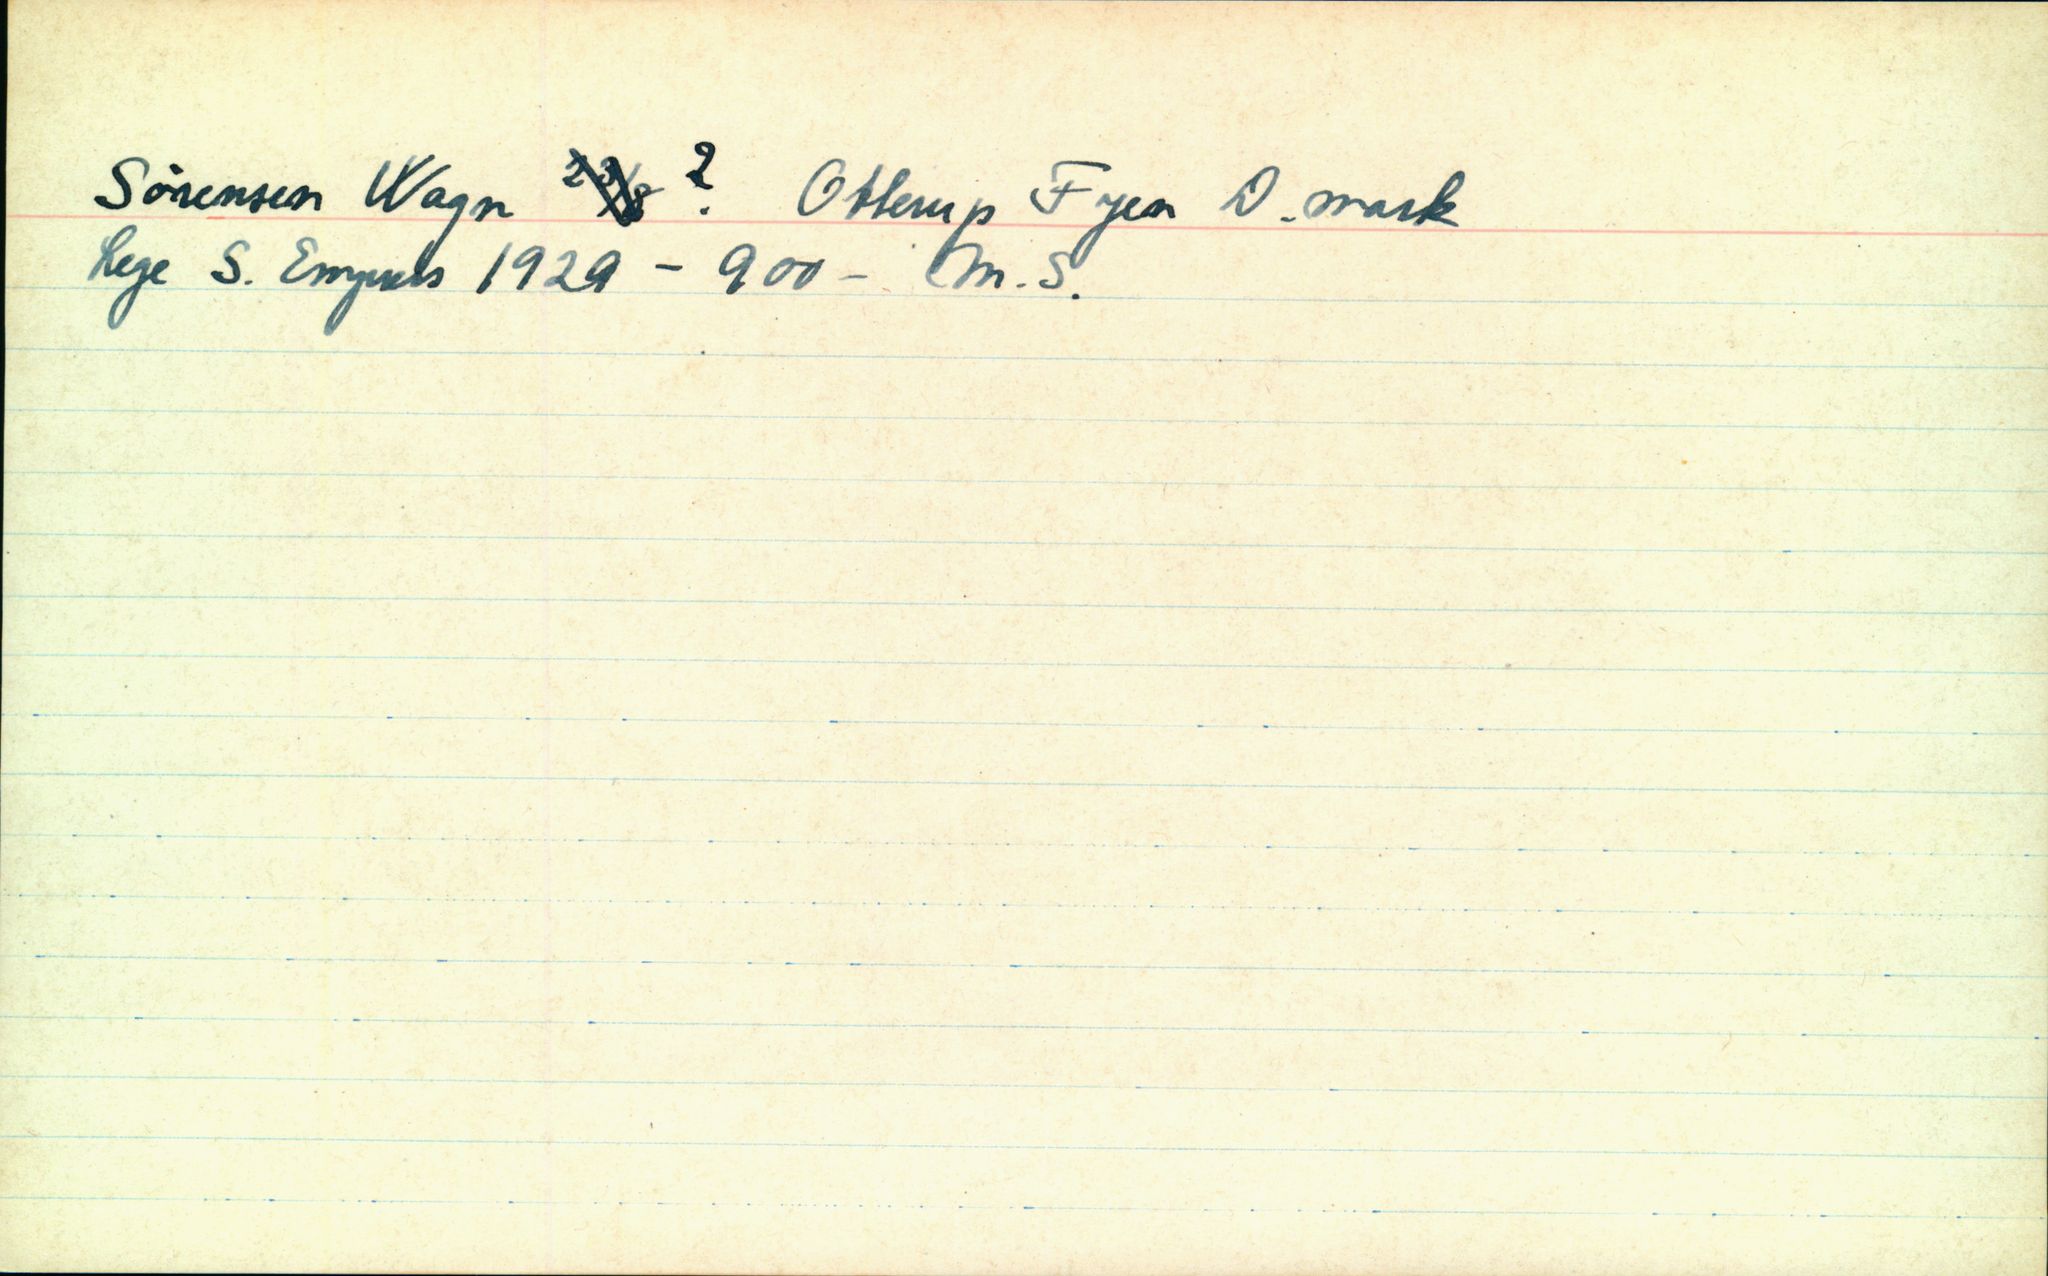 Sörensen Wagn 23/8 ? Otterup Fyen D.mark
Lege S. Empress 1929 - 900 - M.S.